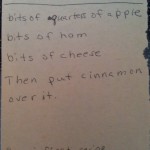 bits of quarter of apple
bits of ham
bits of cheese
Then put cinnamon
over it.